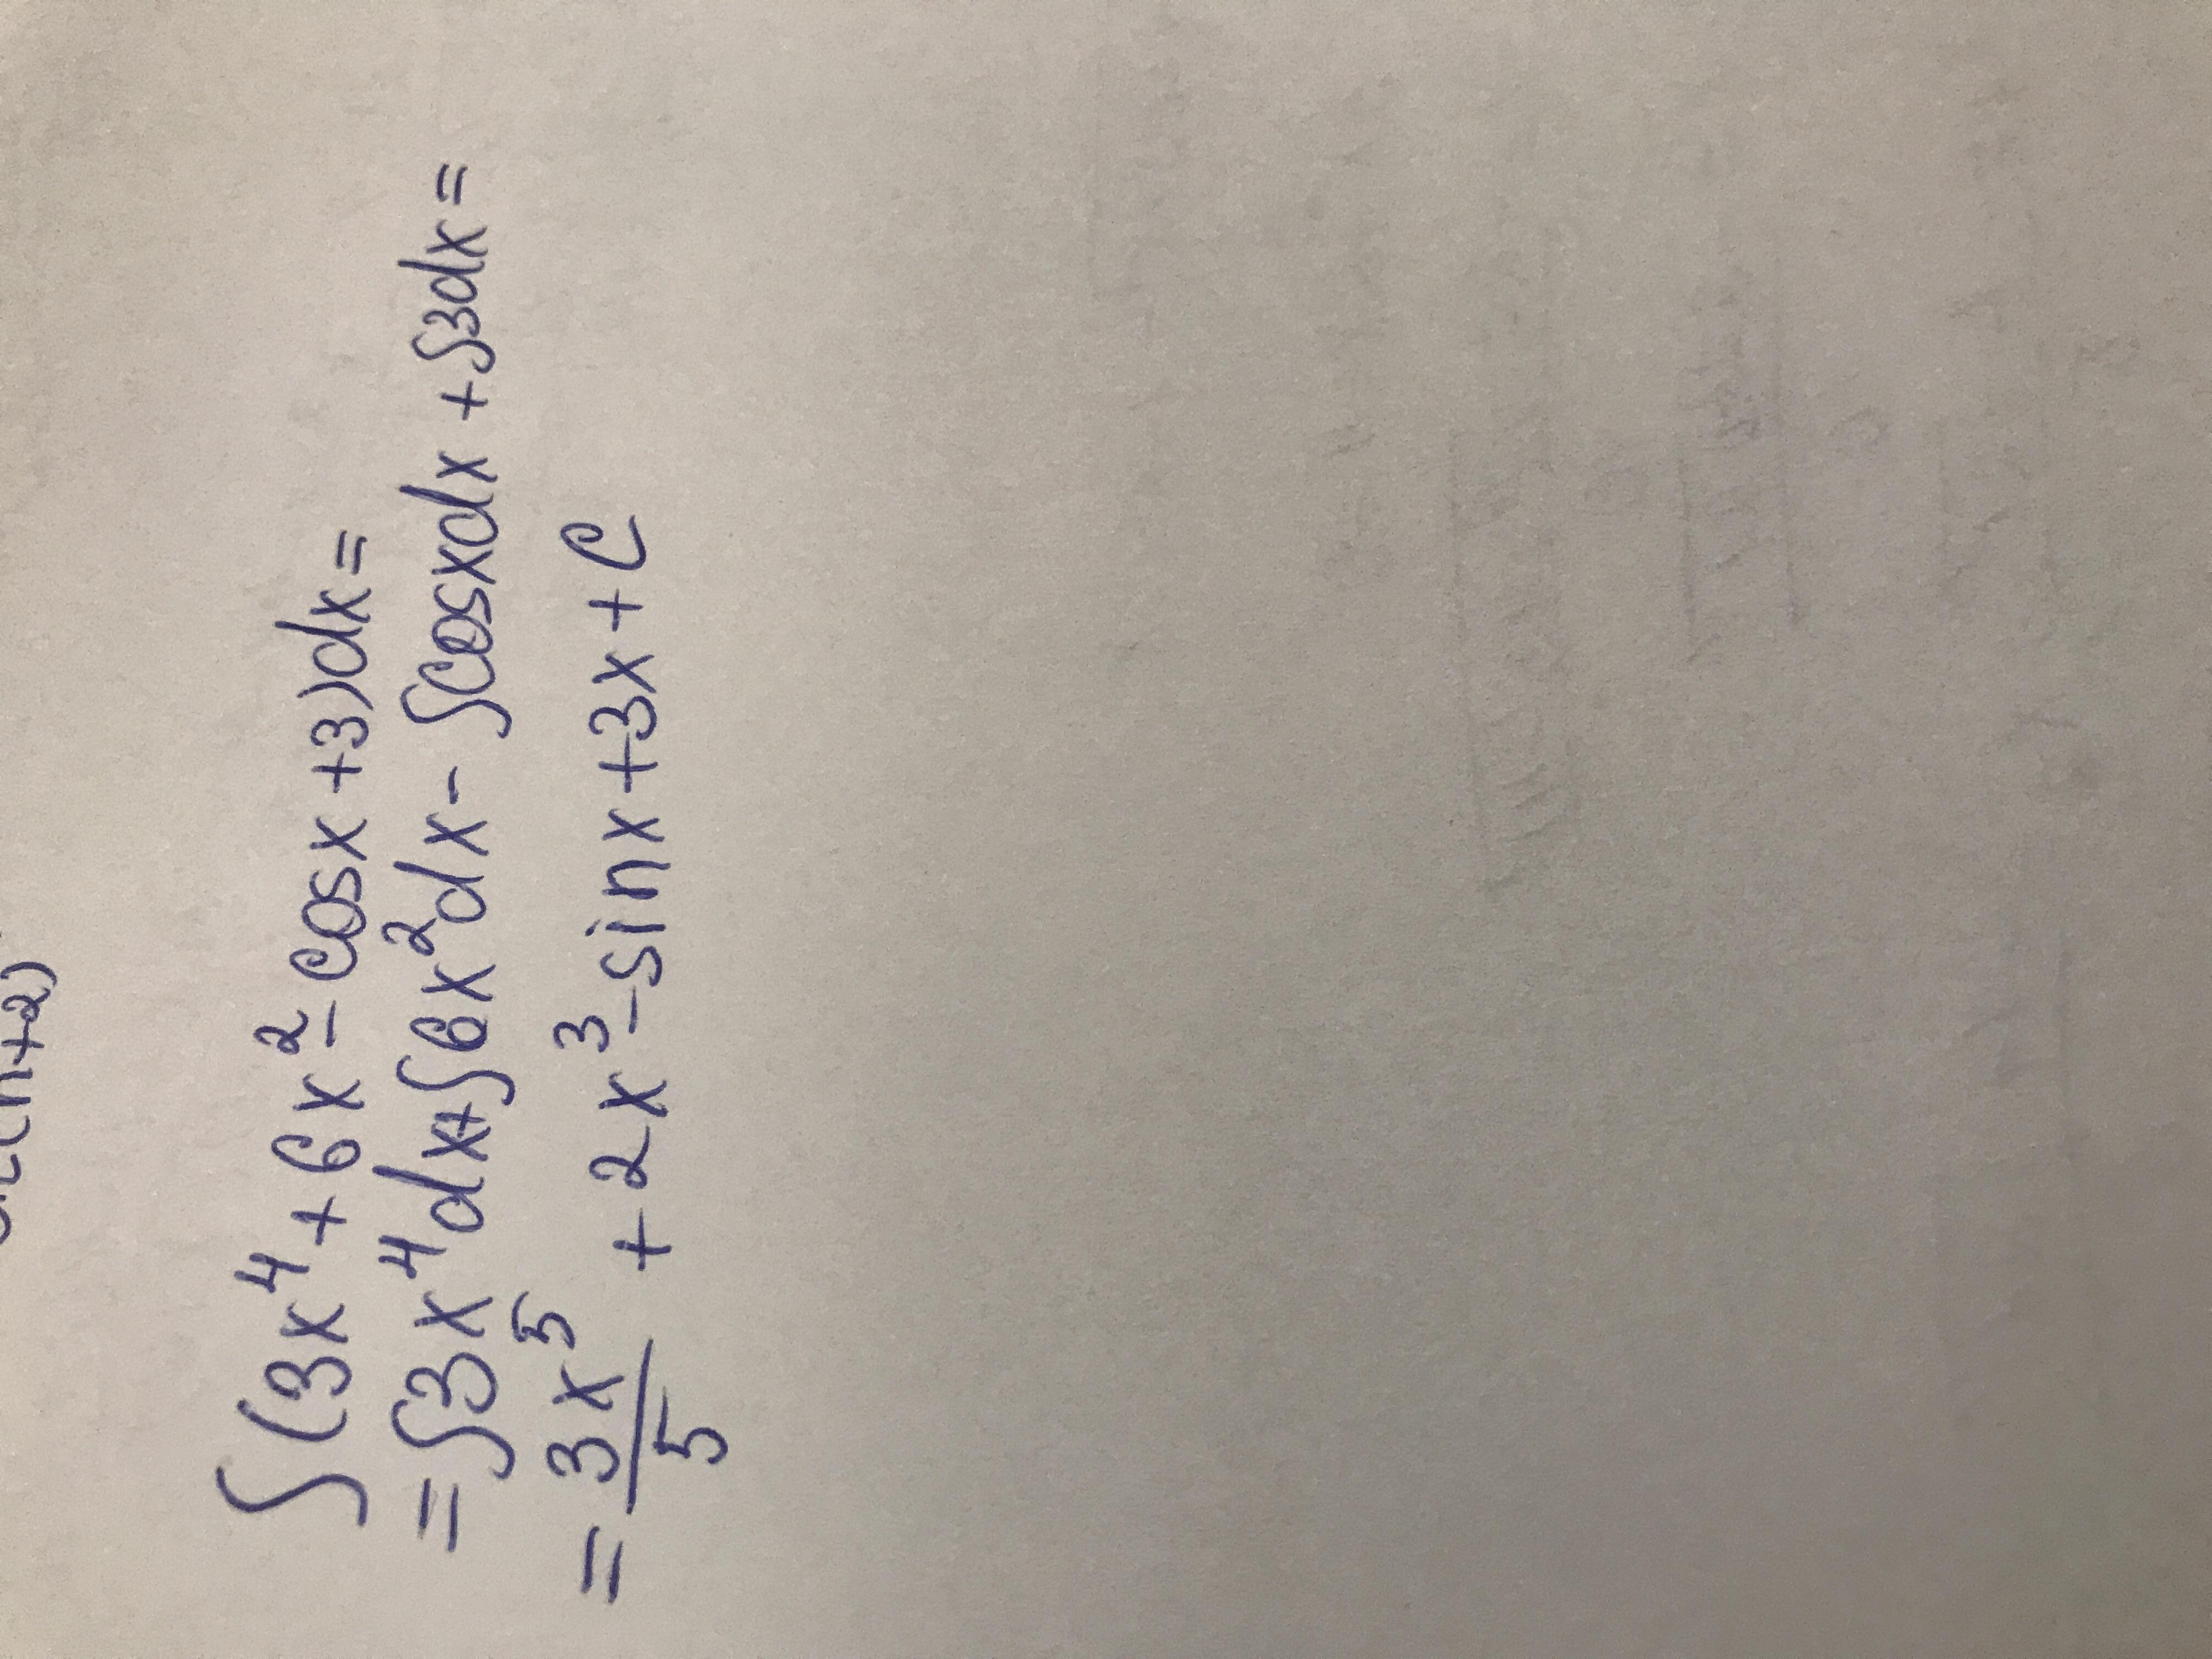 ∫(3x⁴+6x²-cosx+3)dx=
=∫3x⁴dx+∫6x²dx-∫cosxdx+∫3dx=
=3x⁵/5+2x³-sinx+3x+C